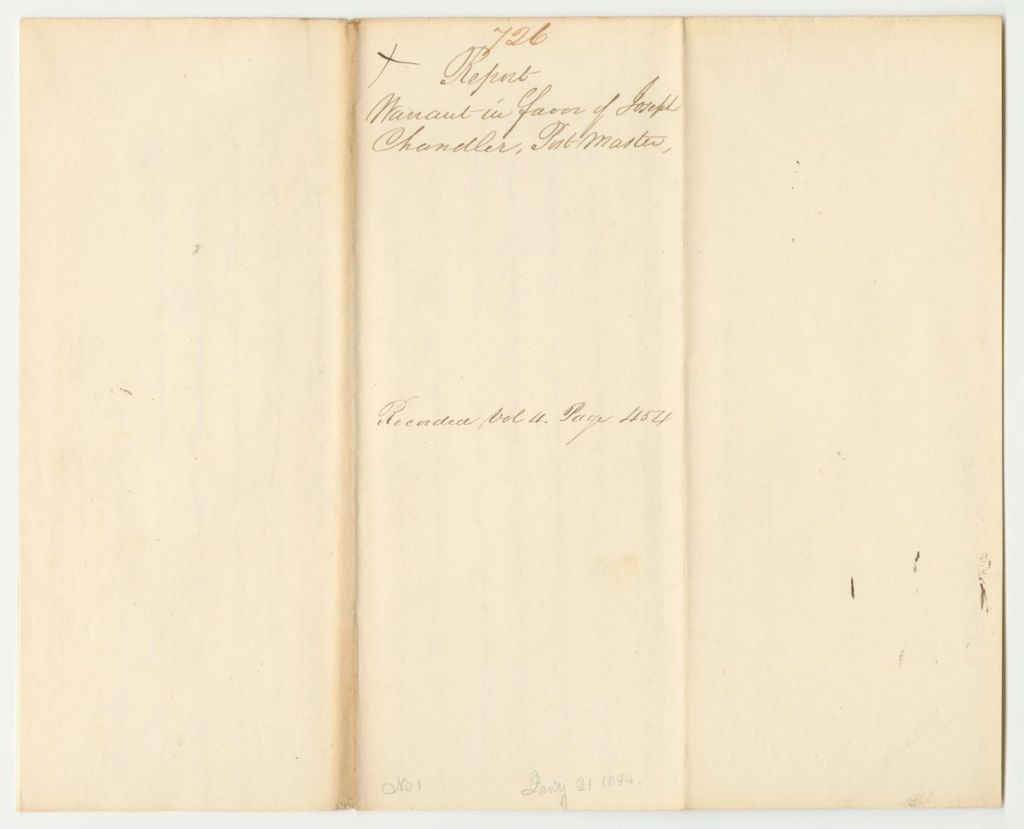 726
X Report
Warrant in favor of Joseph
Chandler, Post Master,
Recorded Vol 4. Page 454
No. 1
Jan'y 21 1834.